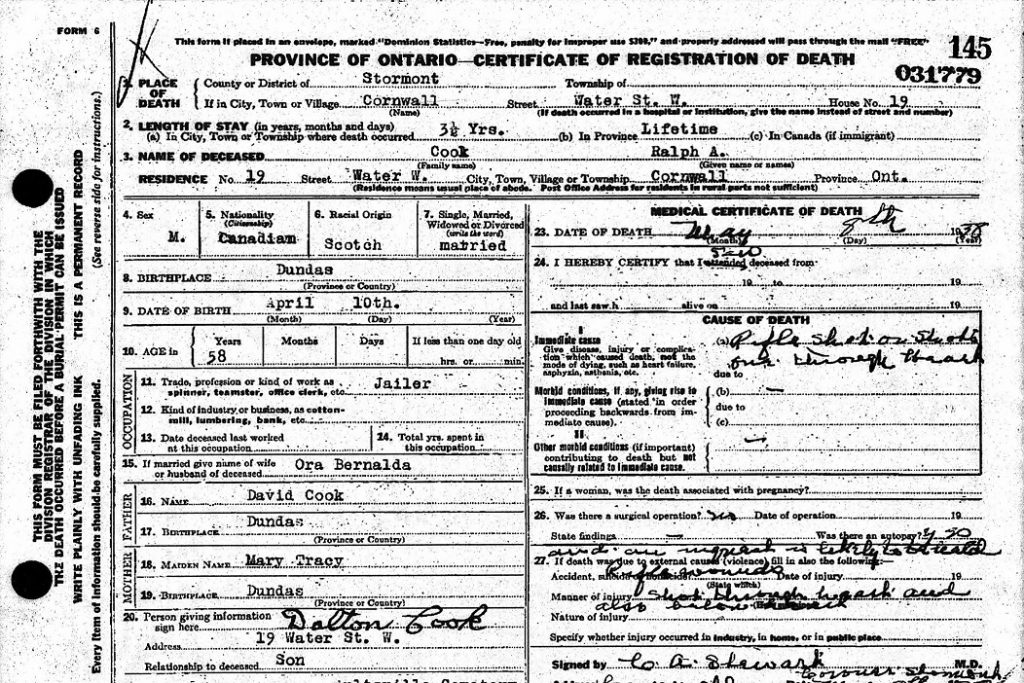 FORM 6
This form if placed in an envelope, marked "Dominion Statistics—Free, penalty for improper use $300," and properly addressed will pass through the mail "FREE"
145
PROVINCE OF ONTARIO—CERTIFICATE OF REGISTRATION OF DEATH
031779
1. PLACE OF DEATH
County or District of Stormont Township of
If in City, Town or Village Cornwall Street Water St. W. House No. 19
(Name) (If death occurred in a hospital or institution, give the name instead of street and number)
2. LENGTH OF STAY (in years, months and days)
(a) In City, Town or Township where death occurred 3½ Yrs. (b) In Province Lifetime (c) In Canada (if immigrant)
3. NAME OF DECEASED Cook Ralph A.
(Family name) (Given name or names)
RESIDENCE No 19 Street Water W. City, Town, Village or Township Cornwall Province Ont.
(Residence means usual place of abode. Post Office Address for residents in rural parts not sufficient)
4. Sex
M.
5. Nationality
(Citizenship)
Canadian
6. Racial Origin
Scotch
7. Single, Married, Widowed or Divorced
(write the word)
married
8. BIRTHPLACE Dundas
(Province or Country)
9. DATE OF BIRTH April 10th.
(Month) (Day) (Year)
10. AGE in
Years Months Days If less than one day old
58 hrs. or min.
OCCUPATION
11. Trade, profession or kind of work as spinner, teamster, office clerk, etc. Jailer
12. Kind of industry or business, as cotton-mill, lumbering, bank, etc.
13. Date deceased last worked at this occupation
14. Total yrs. spent in this occupation
15. If married give name of wife or husband of deceased Ora Bernalda
FATHER
16. NAME David Cook
17. BIRTHPLACE Dundas
(Province or Country)
MOTHER
18. MAIDEN NAME Mary Tracy
19. BIRTHPLACE Dundas
(Province or Country)
20. Person giving information sign here Dalton Cook
Address 19 Water St. W.
Relationship to deceased Son
MEDICAL CERTIFICATE OF DEATH
23. DATE OF DEATH May 8th 1938
(Month) (Day) (Year)
saw
24. I HEREBY CERTIFY that I attended deceased from
19 to 19
and last saw h alive on 19
CAUSE OF DEATH
I
Immediate cause
Give disease, injury or complication which caused death, not the mode of dying, such as heart failure, asphyxia, asthenia, etc.
(a) Rifle shot or shots
one through heart
due to
Morbid conditions, if any, giving rise to immediate cause (stated in order proceeding backwards from immediate cause).
(b) —
due to
(c)
II
Other morbid conditions (if important) contributing to death but not causally related to immediate cause.
—
25. If a woman, was the death associated with pregnancy?
26. Was there a surgical operation? Date of operation 19
State findings — Was there an autopsy?
and an inquest is likely to be held
27. If death was due to external causes (violence) fill in also the following:—
Rifle wounds
Accident, suicide or homicide? Date of injury 19
(State which)
Manner of injury Shot through heart and
also below
Nature of injury
Specify whether injury occurred in industry, in home, or in public place
Signed by C A. Stewart M.D.
Coroner
THIS FORM MUST BE FILED FORTHWITH WITH THE DIVISION REGISTRAR OF THE DIVISION IN WHICH THE DEATH OCCURRED BEFORE A BURIAL PERMIT CAN BE ISSUED
WRITE PLAINLY WITH UNFADING INK THIS IS A PERMANENT RECORD
Every item of information should be carefully supplied. (See reverse side for instructions.)